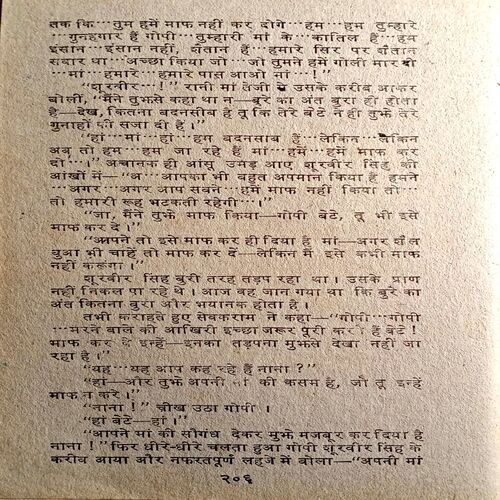 तक कि···तुम हमें माफ नहीं कर दोगे···हम···हम तुम्हारे
···गुनहगार हैं गोपी···तुम्हारी मां के···कातिल हैं···हम
इंसान···इंसान नहीं, शैतान हैं···हमारे सिर पर शैतान
सवार था···अच्छा किया जो···जो तुमने हमें गोली मार दी
···मां···हमारे···हमारे पास आओ मां···!"
"शूरवीर···!" रानी मां तेजी से उसके करीब आकर
बोलीं, "मैंने तुझसे कहा था न—बुरे का अंत बुरा ही होता
है—देख, कितना बदनसीब है तू कि तेरे बेटे ने ही तुझे तेरे
गुनाहों की सजा दी है।"
"हां···मां···हां···हम बदनसीब हैं···लेकिन···लेकिन
अब तो हम···हम जा रहे हैं मां···हमें···हमें माफ कर
दो···।" अचानक ही आंसू उमड़ आए शूरवीर सिंह की
आंखों में—"अ···आपका भी बहुत अपमान किया है हमने
···अगर···अगर आप सबने···हमें माफ नहीं किया तो···
तो हमारी रूह भटकती रहेगी···।"
"जा, मैंने तुझे माफ किया—गोपी बेटे, तू भी इसे
माफ कर दे।"
"आपने तो इसे माफ कर ही दिया है मां—अगर शैल
बुआ भी चाहें तो माफ कर दें—लेकिन मैं इसे कभी माफ
नहीं करूंगा।"
शूरवीर सिंह बुरी तरह तड़प रहा था। उसके प्राण
नहीं निकल पा रहे थे। आज वह जान गया था कि बुरे का
अंत कितना बुरा और भयानक होता है।
तभी कराहते हुए सेवकराम ने कहा—"गोपी···गोपी
···मरने वाले की आखिरी इच्छा जरूर पूरी करते हैं बेटे!
माफ कर दे इन्हें—इनका तड़पना मुझसे देखा नहीं जा
रहा है।"
"यह···यह आप कह रहे हैं नाना?"
"हां—और तुझे अपनी मां की कसम है, जो तू इन्हें
माफ न करे।"
"नाना!" चीख उठा गोपी।
"हां बेटे—हां।"
"आपने मां की सौगंध देकर मुझे मजबूर कर दिया है
नाना!" फिर धीरे-धीरे चलता हुआ गोपी शूरवीर सिंह के
करीब आया और नफरतपूर्ण लहजे में बोला—"अपनी मां
२०६